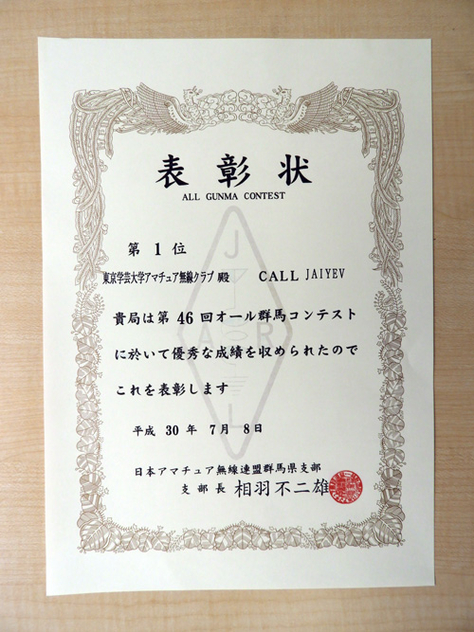 表彰状
ALL GUNMA CONTEST
第 1 位
東京学芸大学アマチュア無線クラブ 殿 CALL JA1YEV
貴局は第 46 回オール群馬コンテスト
に於いて優秀な成績を収められたので
これを表彰します
平成 30 年 7 月 8 日
日本アマチュア無線連盟群馬県支部
支部長 相羽不二雄
J
A R
L